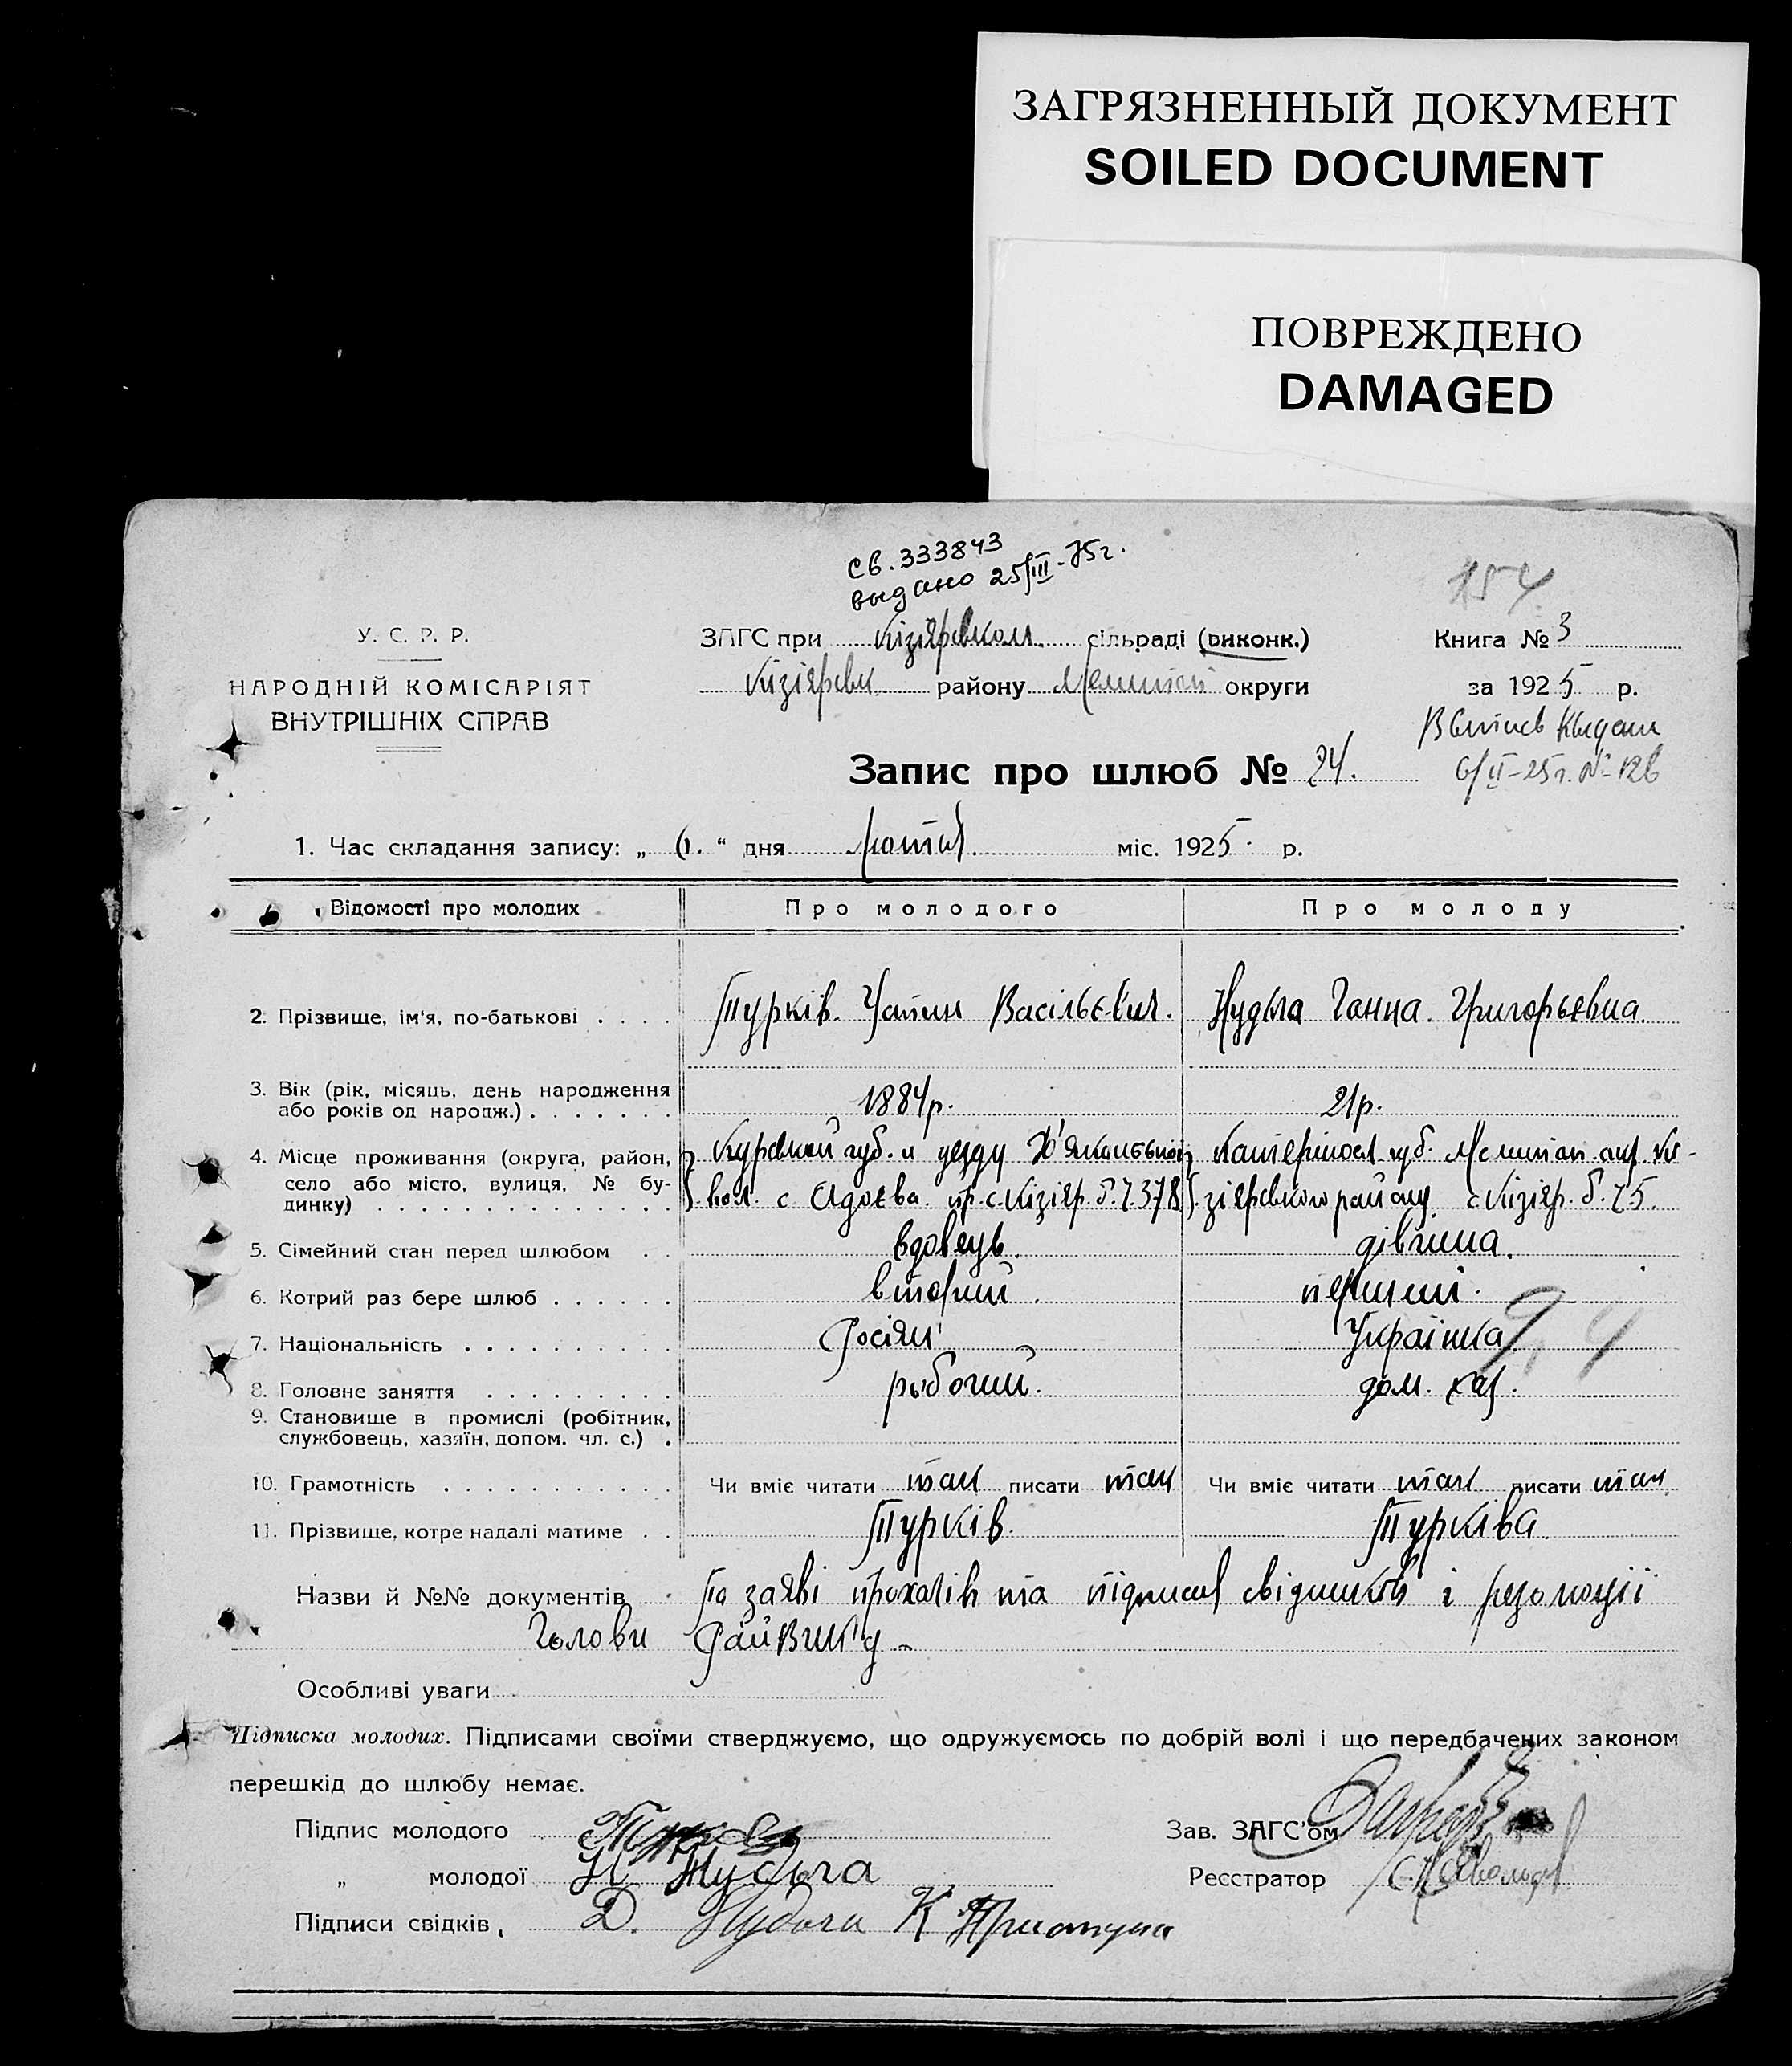 ЗАГРЯЗНЕННЫЙ ДОКУМЕНТ
SOILED DOCUMENT
ПОВРЕЖДЕНО
DAMAGED
св. 333843
выдано 25/III-75г.
154
У. С. Р. Р.
НАРОДНІЙ КОМІСАРІЯТ
ВНУТРІШНІХ СПРАВ
ЗАГС при Кізіярвком сільраді (виконк.)
Кізіярвк району округи
Книга № 3
за 1925 р.
6/II-25г. №
Запис про шлюб № 24.
1. Час складання запису: „ 6. “ дня міс. 1925 р.
Відомості про молодих Про молодого Про молоду
2. Прізвище, ім'я, по-батькові . . . . Турків Васільєвич. Нудьга Ганна Григорьєвна.
3. Вік (рік, місяць, день народження
або років од народж.) . . . . . . . 1884р. 21р.
4. Місце проживання (округа, район, Курской губ. и уезду
село або місто, вулиця, № бу- вол. с. пр. с. Кізіяр. б. ч. 378 зіярвского району с Кізіяр. б. ч 5.
динку) . . . . . . . . . . . . . .
5. Сімейний стан перед шлюбом . . вдовець. дівчина.
6. Котрий раз бере шлюб . . . . . . вторий перший.
7. Національність . . . . . . . . . Росіян Українка
8. Головне заняття . . . . . . . . . рыбочий. дом. хаз.
9. Становище в промислі (робітник,
службовець, хазяїн, допом. чл. с.) .
10. Грамотність . . . . . . . . . . . Чи вміє читати так писати так Чи вміє читати так писати так
11. Прізвище, котре надалі матиме . . Турків. Турківа
Назви й №№ документів По заяві прохачів та підписів свідників і резолюції
Голови Райвик'у
Особливі уваги
Підписка молодих. Підписами своїми стверджуємо, що одружуємось по добрій волі і що передбачених законом
перешкід до шлюбу немає.
Підпис молодого Зав. ЗАГС'ом
„ молодої Нудьга Реєстратор
Підписи свідків, Д. Нудьга К